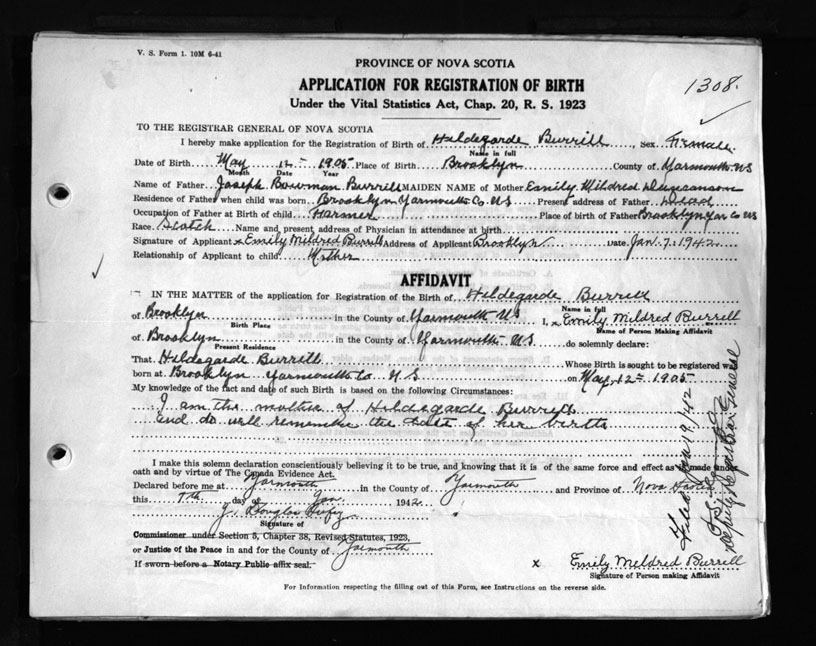 V. S. Form 1. 10M 6-41
PROVINCE OF NOVA SCOTIA
APPLICATION FOR REGISTRATION OF BIRTH
1308.
Under the Vital Statistics Act, Chap. 20, R. S. 1923
TO THE REGISTRAR GENERAL OF NOVA SCOTIA
I hereby make application for the Registration of Birth of Hildegarde Burrill, Sex Female.
Name in full
Date of Birth May 12 1905 Place of Birth Brooklyn County of Yarmouth NS
Month Date Year
Name of Father Joseph Bowman Burrill MAIDEN NAME of Mother Emily Mildred
Residence of Father when child was born Brooklyn Yarmouth Co. NS Present address of Father Dead
Occupation of Father at Birth of child Farmer Place of birth of Father Brooklyn Yar Co NS
Race Scotch Name and present address of Physician in attendance at birth
Signature of Applicant x Emily Mildred Burrill Address of Applicant Brooklyn Date Jan. 7. 1942
Relationship of Applicant to child Mother
AFFIDAVIT
IN THE MATTER of the application for Registration of the Birth of Hildegarde Burrill
Name in full
of Brooklyn in the County of Yarmouth NS I, x Emily Mildred Burrill
Birth Place Name of Person Making Affidavit
of Brooklyn in the County of Yarmouth N.S. do solemnly declare:
Present Residence
That Hildegarde Burrill Whose Birth is sought to be registered was
born at Brooklyn Yarmouth Co. N.S. on May 12 1905
My knowledge of the fact and date of such Birth is based on the following Circumstances:
I am the mother of Hildegarde Burrill
and do well remember the date of her birth
I make this solemn declaration conscientiously believing it to be true, and knowing that it is of the same force and effect as if made under
oath and by virtue of The Canada Evidence Act.
Declared before me at Yarmouth in the County of Yarmouth and Province of Nova Scotia
this 7th day Jan. 1942
J. Douglas
Signature of
Commissioner under Section 5, Chapter 38, Revised Statutes, 1923,
or Justice of the Peace in and for the County of Yarmouth
If sworn before a Notary Public affix seal.
x Emily Mildred Burrill
Signature of Person making Affidavit
For Information respecting the filling out of this Form, see Instructions on the reverse side.
Filed Jan 19/42
Deputy Registrar General